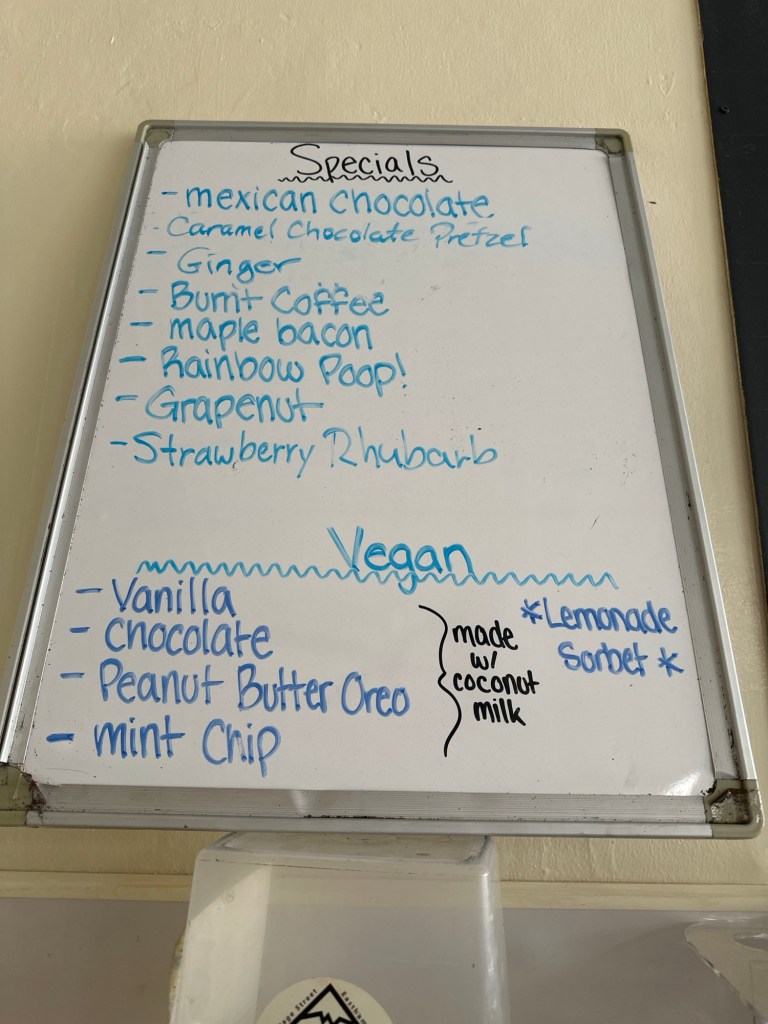 Specials
- mexican chocolate
- Caramel Chocolate Pretzel
- Ginger
- Burnt Coffee
- maple bacon
- Rainbow Poop!
- Grapenut
- Strawberry Rhubarb
Vegan
- Vanilla
- Chocolate
- Peanut Butter Oreo
- mint Chip
made
w/
coconut
milk
*Lemonade
Sorbet *
Street